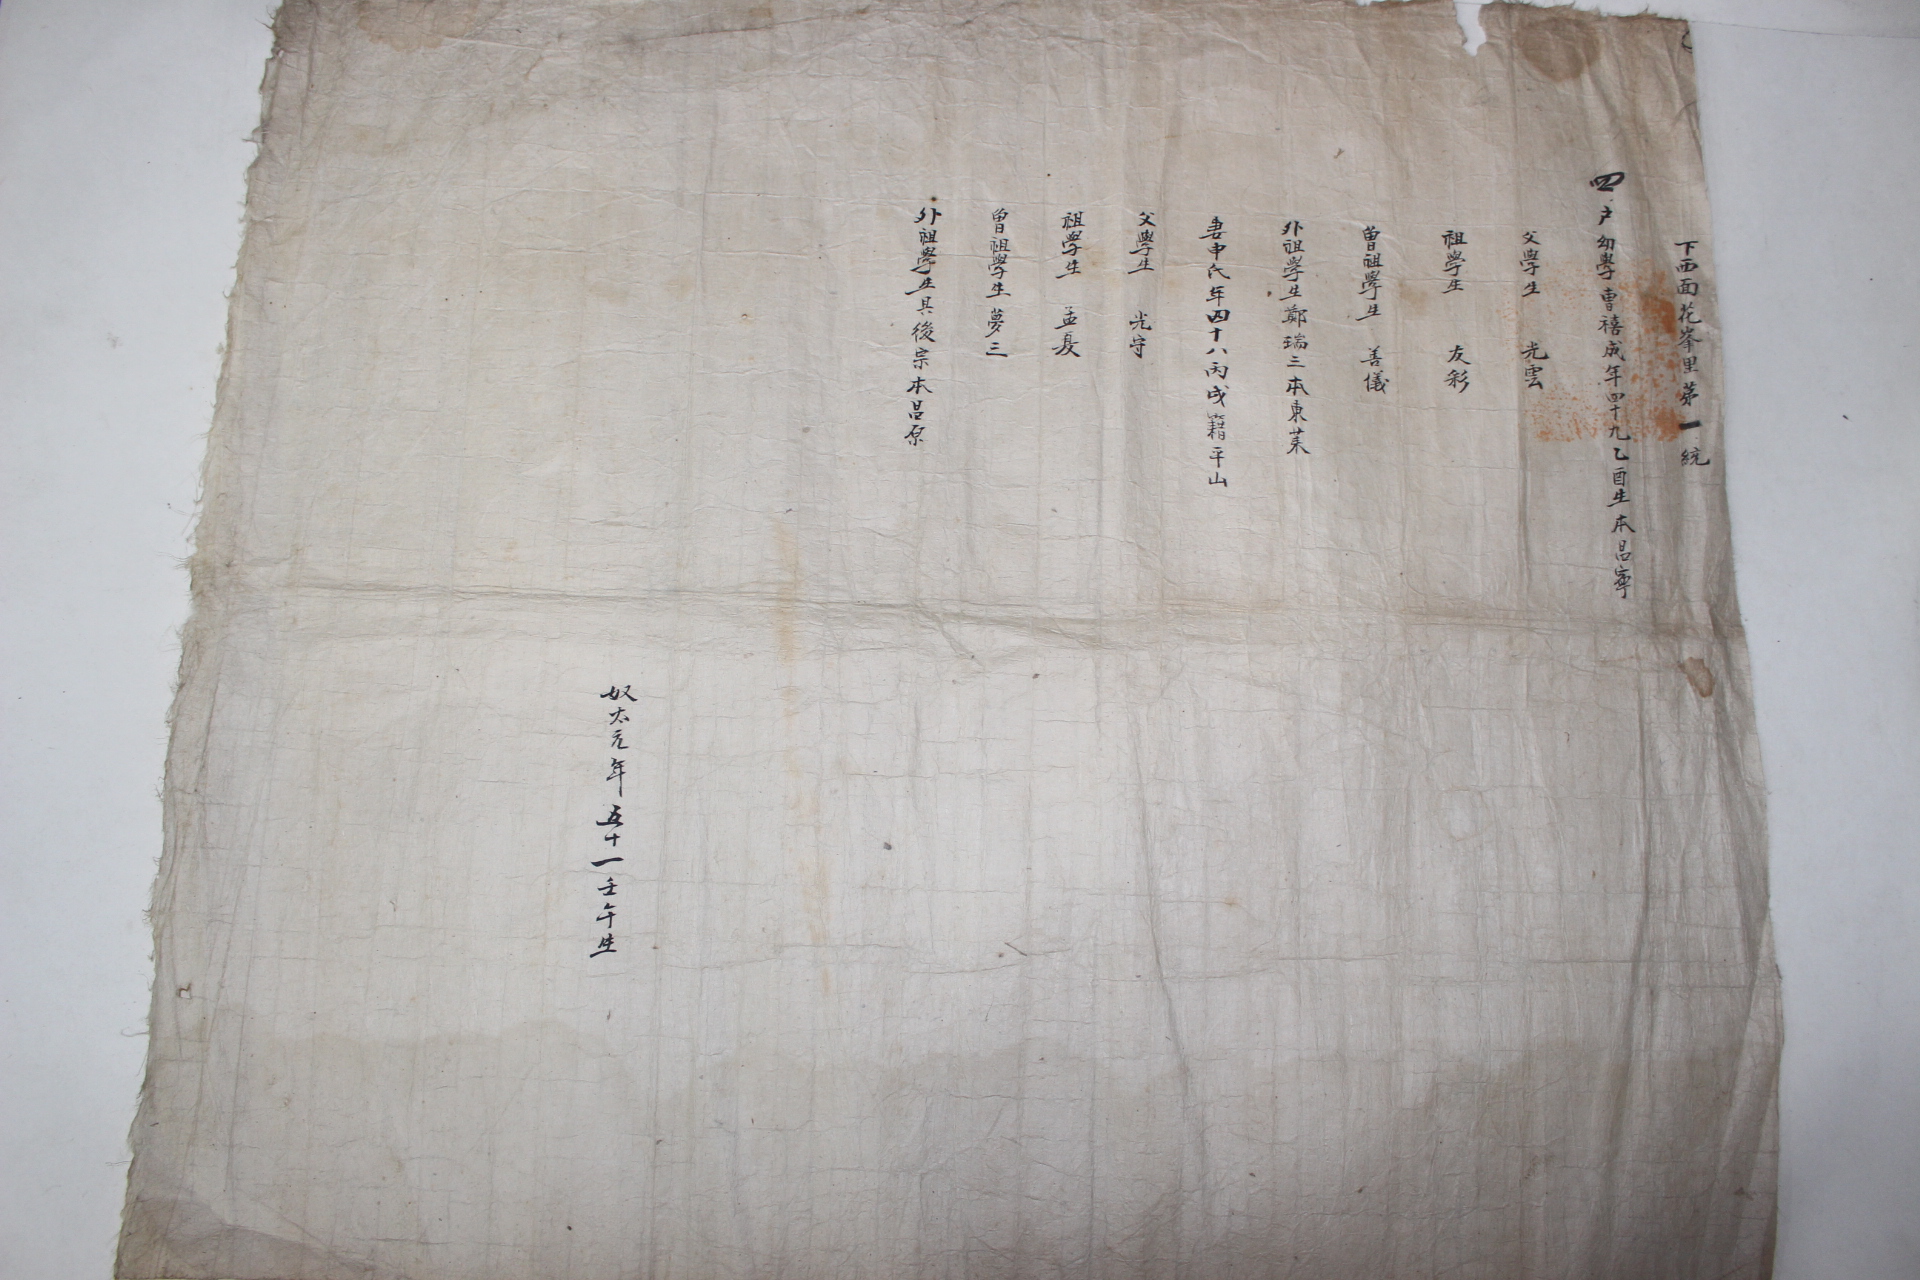 下西面花峯里第一統
四户幼學曺禧成年四十九乙酉生本昌寧
父學生 光雲
祖學生 友彩
曽祖學生 善儀
外祖學生鄭瑞三本東萊
妻申氏年四十八丙戌籍平山
父學生 光守
祖學生 孟夏
曽祖學生夢三
外祖學生具後宗本昌原
奴太元年五十一壬午生